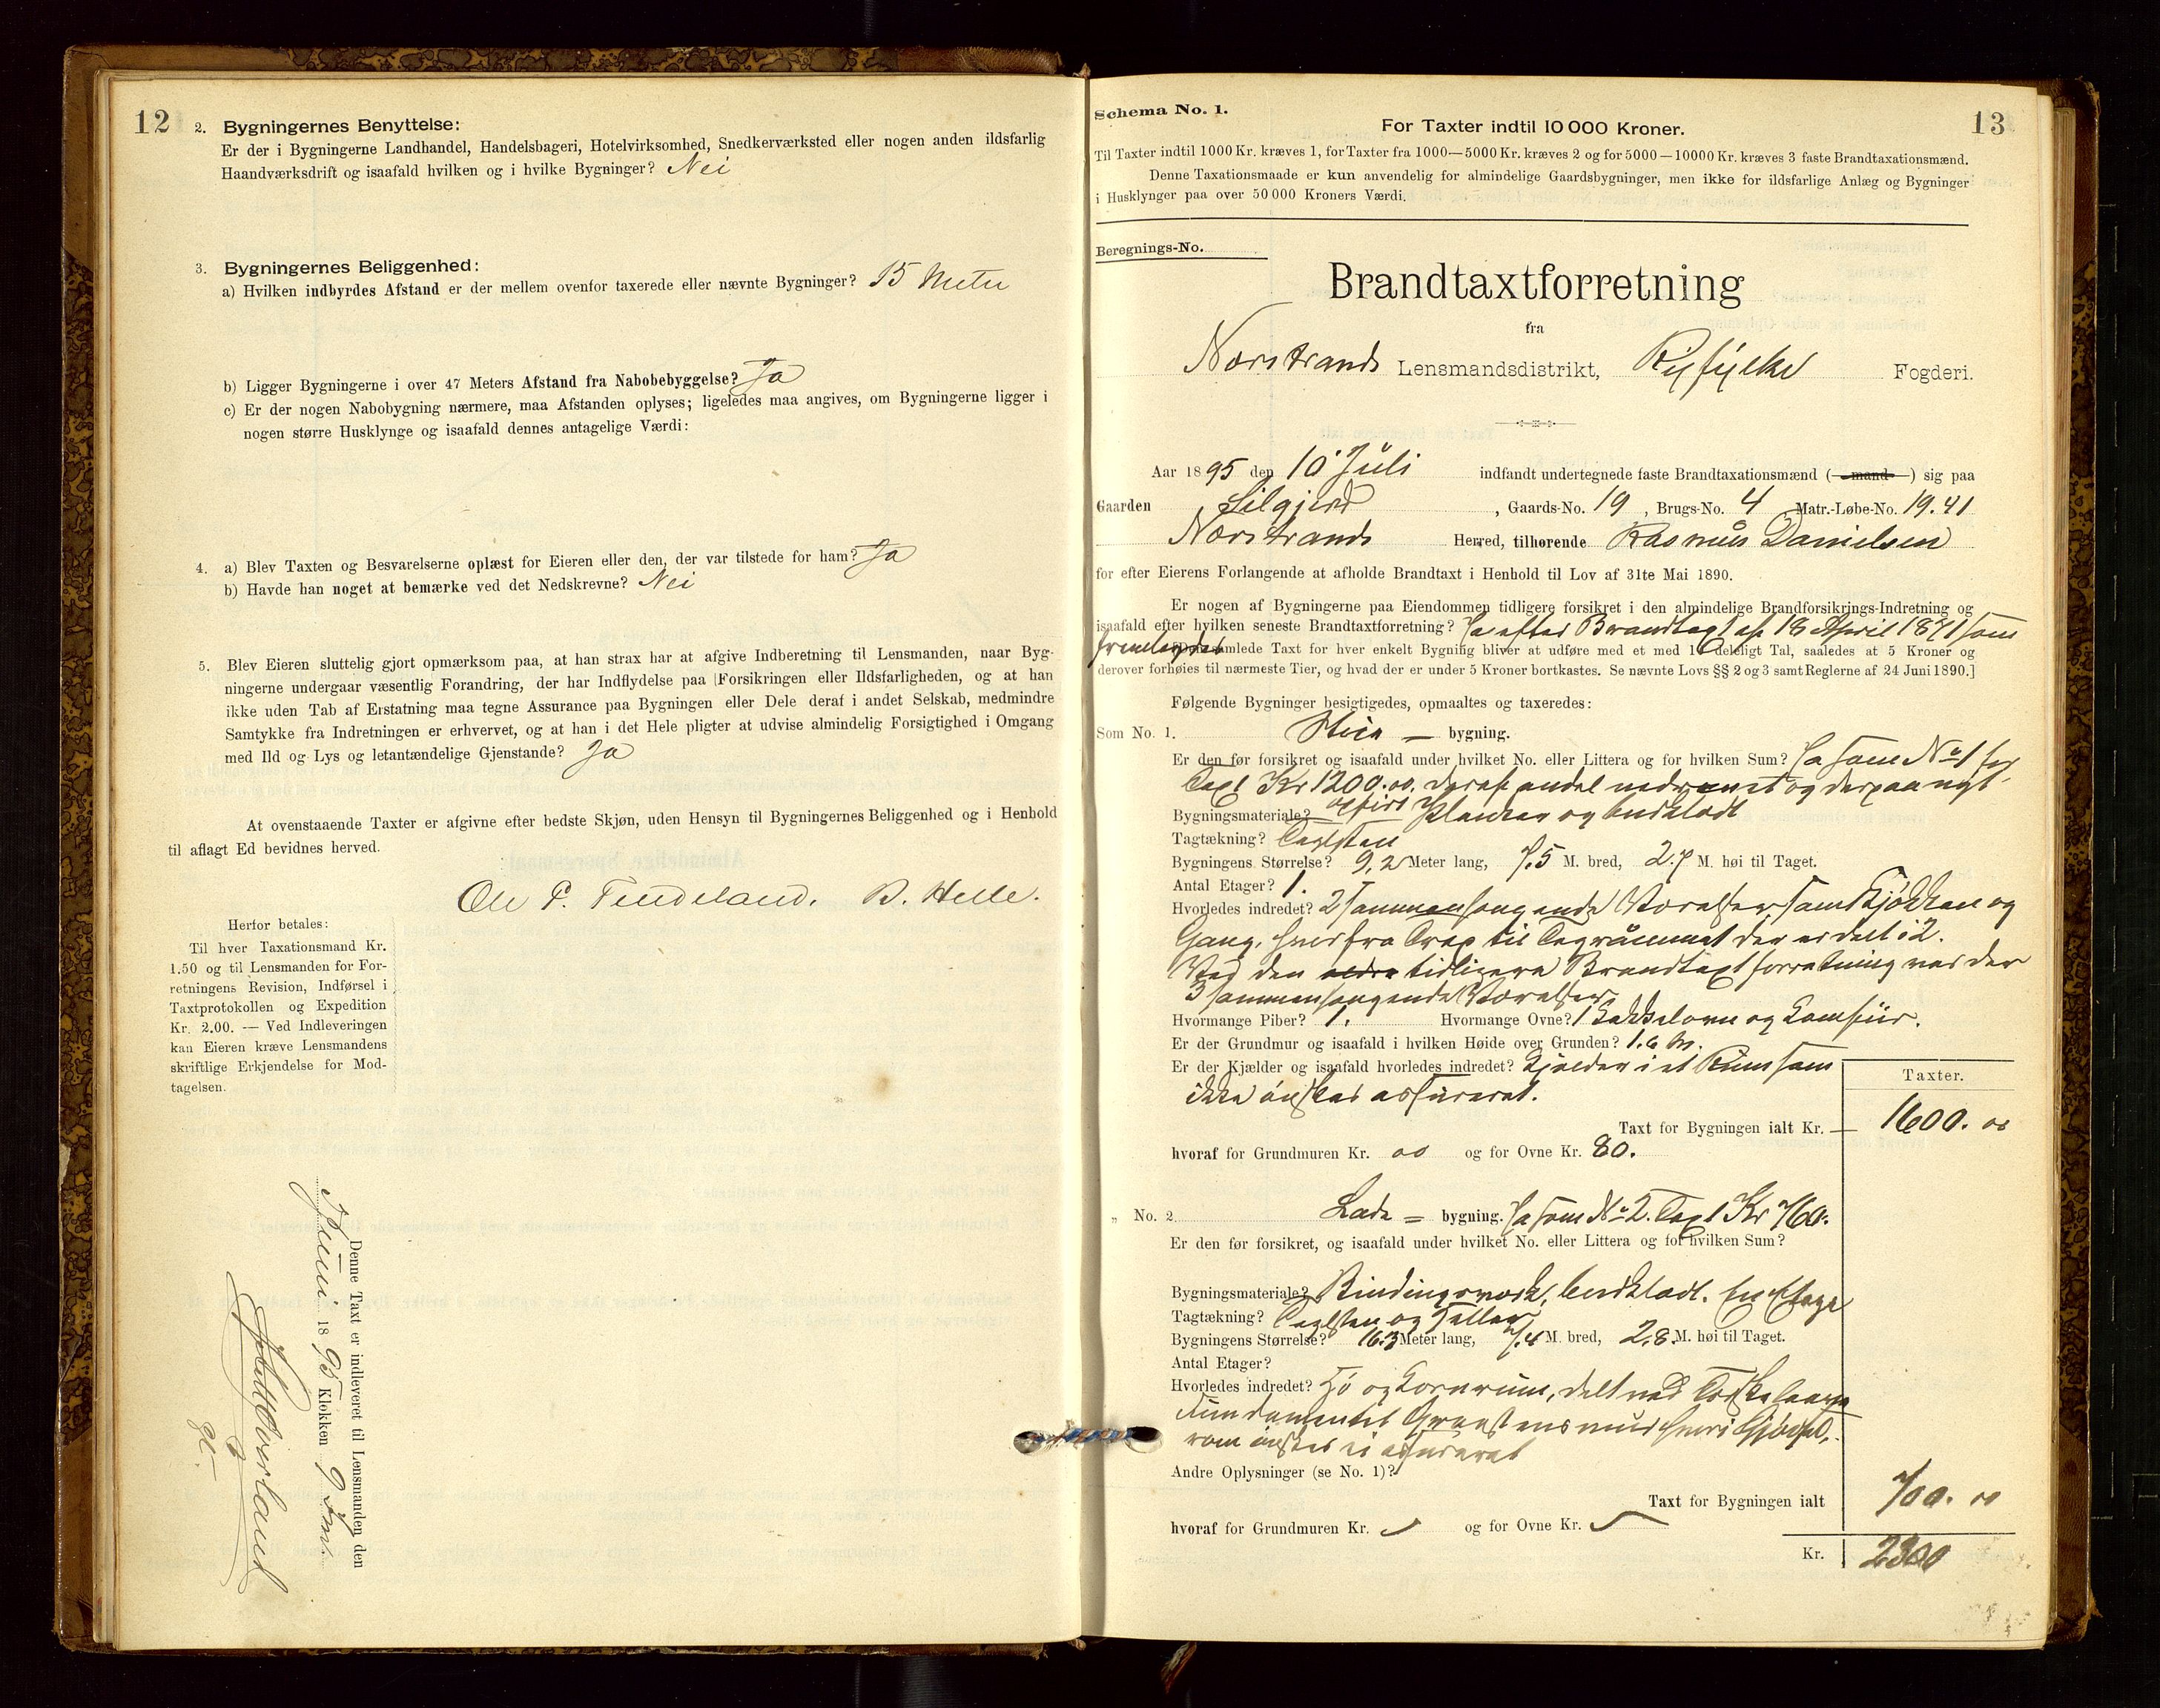 12
2. Bygningernes Benyttelse:
Er der i Bygningerne Landhandel, Handelsbageri, Hotelvirksomhed, Snedkerværksted eller nogen anden ildsfarlig
Haandværksdrift og isaafald hvilken og i hvilke Bygninger? Nei
3. Bygningernes Beliggenhed:
a) Hvilken indbyrdes Afstand er der mellem ovenfor taxerede eller nævnte Bygninger? 15 Meter
b) Ligger Bygningerne i over 47 Meters Afstand fra Nabobebyggelse? Ja
c) Er der nogen Nabobygning nærmere, maa Afstanden oplyses; ligeledes maa angives, om Bygningerne ligger i
nogen større Husklynge og isaafald dennes antagelige Værdi:
4. a) Blev Taxten og Besvarelserne oplæst for Eieren eller den, der var tilstede for ham? Ja
b) Havde han noget at bemærke ved det Nedskrevne? Nei
5. Blev Eieren sluttelig gjort opmærksom paa, at han strax har at afgive Indberetning til Lensmanden, naar Byg-
ningerne undergaar væsentlig Forandring, der har Indflydelse paa Forsikringen eller Ildsfarligheden, og at han
ikke uden Tab af Erstatning maa tegne Assurance paa Bygningen eller Dele deraf i andet Selskab, medmindre
Samtykke fra Indretningen er erhvervet, og at han i det Hele pligter at udvise almindelig Forsigtighed i Omgang
med Ild og Lys og letantændelige Gjenstande? Ja
At ovenstaaende Taxter er afgivne efter bedste Skjøn, uden Hensyn til Bygningernes Beliggenhed og i Henhold
til aflagt Ed bevidnes herved.
Ole P. Tindeland. B. Helle.
Herfor betales:
Til hver Taxationsmand Kr.
1.50 og til Lensmanden for For-
retningens Revision, Indførsel i
Taxtprotokollen og Expedition
Kr. 2.00. — Ved Indleveringen
kan Eieren kræve Lensmandens
skriftlige Erkjendelse for Mod-
tagelsen.
Denne Taxt er indleveret til Lensmanden den
1895 Klokken 9 Fm.
13
Schema No. 1.
For Taxter indtil 10 000 Kroner.
Til Taxter indtil 1000 Kr. kræves 1, for Taxter fra 1000—5000 Kr. kræves 2 og for 5000—10000 Kr. kræves 3 faste Brandtaxationsmænd.
Denne Taxationsmaade er kun anvendelig for almindelige Gaardsbygninger, men ikke for ildsfarlige Anlæg og Bygninger
i Husklynger paa over 50 000 Kroners Værdi.
Beregnings-No.
Brandtaxtforretning
fra
Nærstrands Lensmandsdistrikt, Ryfylke Fogderi.
Aar 1895 den 10 Juli indfandt undertegnede faste Brandtaxationsmænd (mand) sig paa
Gaarden Lilgjerd, Gaards-No. 19, Brugs-No. 4 Matr.-Løbe-No. 19.41
Nærstrands Herred, tilhørende Rasmus Danielsen
for efter Eierens Forlangende at afholde Brandtaxt i Henhold til Lov af 31te Mai 1890.
Er nogen af Bygningerne paa Eiendommen tidligere forsikret i den almindelige Brandforsikrings-Indretning og
isaafald efter hvilken seneste Brandtaxtforretning? Ja efter Brandtaxt af 18 April 1871 som
fremlagdes
samlede Taxt for hver enkelt Bygning bliver at udføre med et med 10 deleligt Tal, saaledes at 5 Kroner og
derover forhøies til nærmeste Tier, og hvad der er under 5 Kroner bortkastes. Se nævnte Lovs §§ 2 og 3 samt Reglerne af 24 Juni 1890.]
Følgende Bygninger besigtigedes, opmaaltes og taxeredes:
Som No. 1. bygning.
Er den før forsikret og isaafald under hvilket No. eller Littera og for hvilken Sum? Ja som No 1 for
Taxt Kr 1200.00. deraf andel nedrevet og derpaa nyt
opført
Bygningsmateriale? Planker og bordklædt
Tagtækning? Taglsten
Bygningens Størrelse? 9,2 Meter lang, 7.5 M. bred, 2.7 M. høi til Taget.
Antal Etager? 1.
Hvorledes indredet? 2 sammenhængende Værelser, samt Kjøkken og
Gang, hver fra Trap til Tagrummet der er delt i 2.
Ved den ældre tidligere Brandtaxtforretning var der
3 sammenhængende Værelser
Hvormange Piber? 1. Hvormange Ovne? 1 Kakkelovn og Komfür.
Er der Grundmur og isaafald i hvilken Høide over Grunden? 1.6 M.
Er der Kjælder og isaafald hvorledes indredet? Kjelder i et Rum som
ikke ønskes assureret.
Taxter.
Taxt for Bygningen ialt Kr. 1600. 00
hvoraf for Grundmuren Kr. 00 og for Ovne Kr. 80.
„ No. 2 Lade = bygning. Ja som No 2. Taxt Kr 760.
Er den før forsikret, og isaafald under hvilket No. eller Littera og for hvilken Sum?
Bygningsmateriale? Bindingsverk, bordklædt. En Etage
Tagtækning? Taglsten og Heller
Bygningens Størrelse? 16.3 Meter lang, 7.4 M. bred, 2.8 M. høi til Taget.
Antal Etager?
Hvorledes indredet? Hø og Kornrum, delt ved Tærskelaave
Fundamentet Graastensmur
som ønskes ei assureret
Andre Oplysninger (se No. 1)?
Taxt for Bygningen ialt 700. 00
hvoraf for Grundmuren Kr. og for Ovne Kr.
Kr. 2300